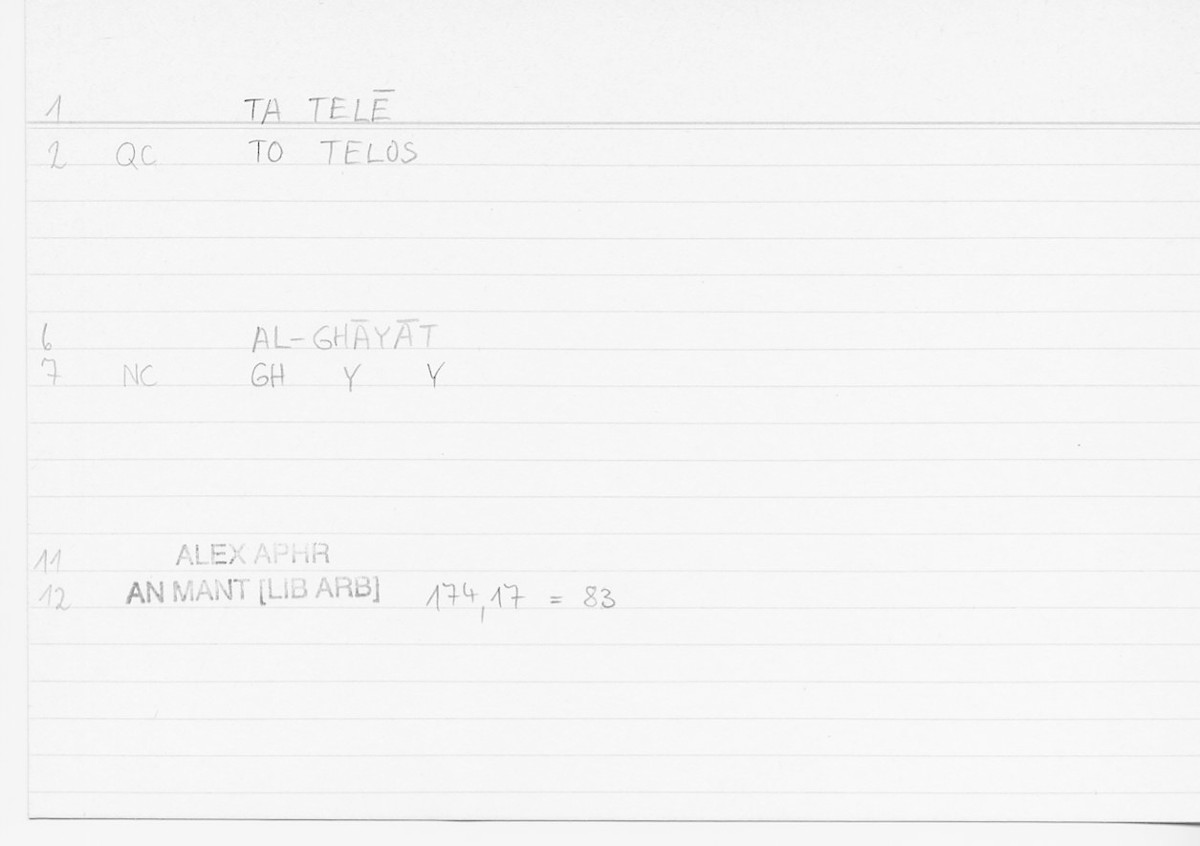 1 TA TELĒ
2 QC TO TELOS
6 AL-GHĀYĀT
7 NC GH Y Y
11 ALEX APHR
12 AN MANT [LIB ARB] 174,17 = 83